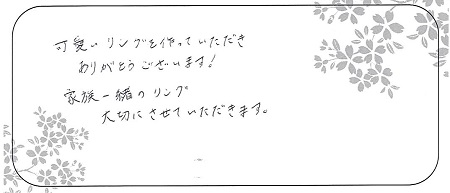 可愛いリングを作っていただき
ありがとうございます!
家族一緒のリング
大切にさせていただきます。